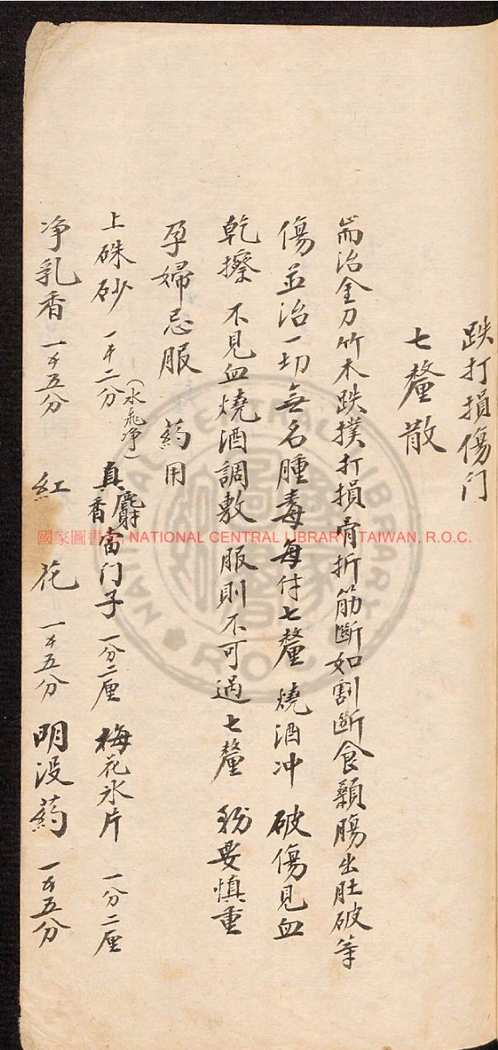 跌打損傷门
七釐散
耑治金刀竹木跌撲打損骨折筋斷如割斷食顙腸出肚破等
傷並治一切無名腫毒每付七釐 燒酒冲 破傷見血
乾擦 不見血燒酒調敷 服則不可過七釐 務要慎重
孕婦忌服 药用
上硃砂 一本二分(水飛净) 真麝香當门子 一分二厘 梅花氷片 一分二厘
净乳香 一本五分 紅花 一本五分 明没药 一本五分
國家圖書 NATIONAL CENTRAL LIBRARY, TAIWAN, R.O.C.
NATIONAL CENTRAL LIBRARY R.O.C.